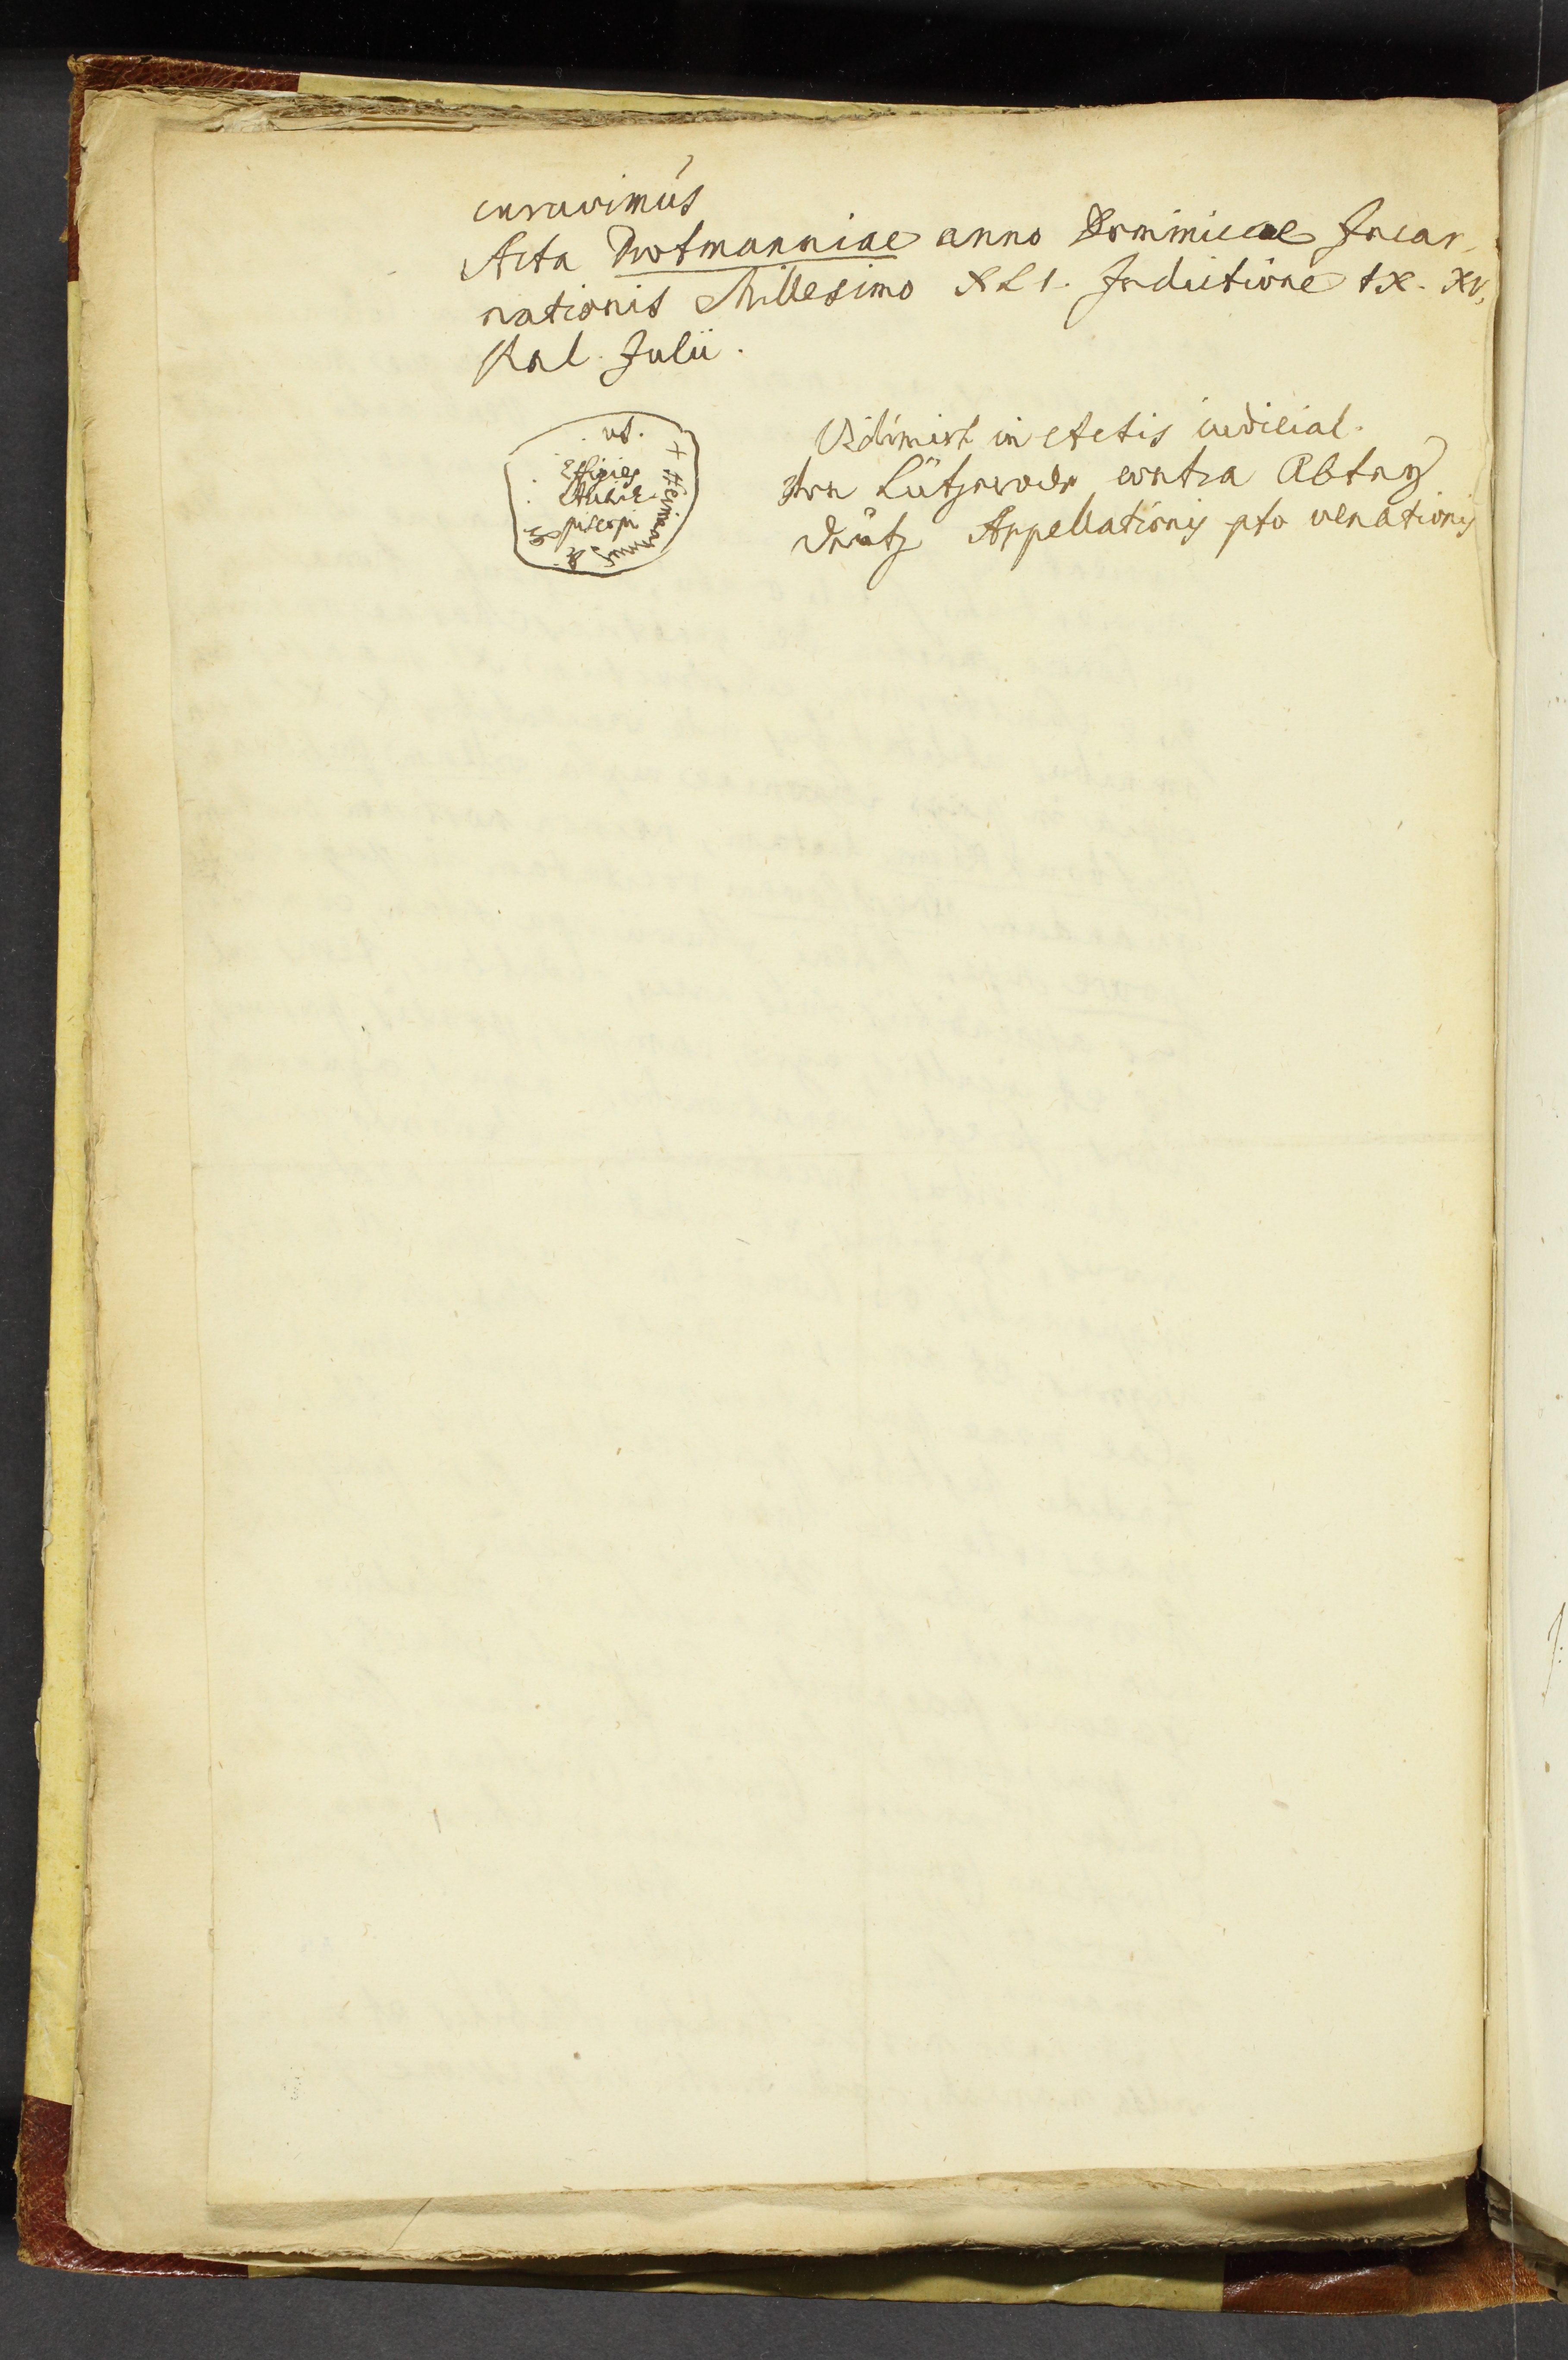 curavimus
Acta Drotmanniae anno Dominicae Incar,
nationis Millesimo XLI. Indictione IX. XV,
Kal. Julii.
us.
Effigies
Archie
piscopi
+ Herimannus
Vidimirt in Actis iudicial.
von Lützerode contra Abtey
Deutz Appellationis pto venationis